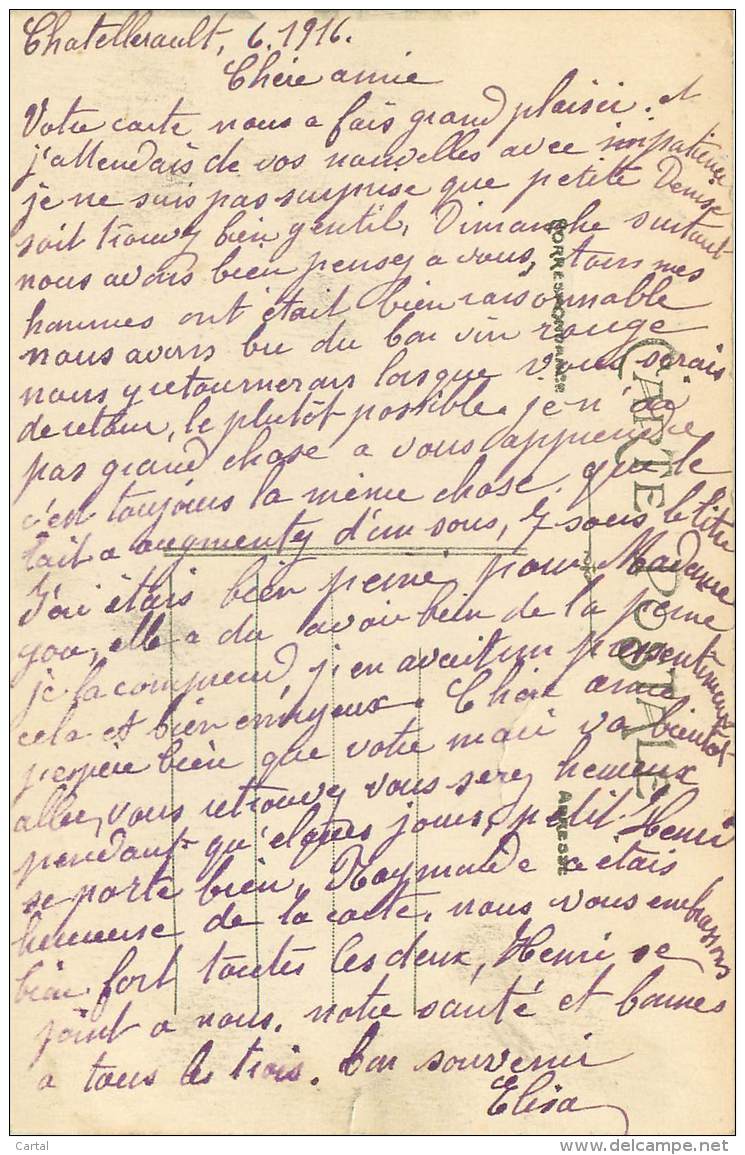 Chatellerault, 6.1916.
Chère amie
Votre carte nous a fais grand plaisir. et
j'attendais de vos nouvelles avec impatience
je ne suis pas surprise que petite Denise
soit trouvy bien gentil, Dimanche surtout
nous avons bien pensey a vous, tous mes
hommes ont était bien raisonnable
nous avons bu du bon vin rouge
nous y retournerons lorsque vous serais
de retour, le plutôt possible. je n'ai
pas grand chose a vous apprendre
c'est toujours la même chose. que le
lait a augmenty d'un sous, 7 sous le litre
J'ai étais bien peiné, pour Madame
elle a du avoir bien de la peine
je la comprend j'en avait un pressentiment
cela et bien ennyeux. Chère amie
j'espère bien que votre mari va bientôt
aller, vous retrouvy vous serey heureux
pendant qu'elques jours, petit Henri
se porte bien, Raymonde a étais
heureuse de la carte, nous vous embrassons
bien fort toutes les deux, Henri se
joint a nous. notre santé et bonnes
a tous les trois. bon souvenir
Elisa
CARTE POSTALE
CORRESPONDANCE
ADRESSE
Cartal
www.delcampe.net